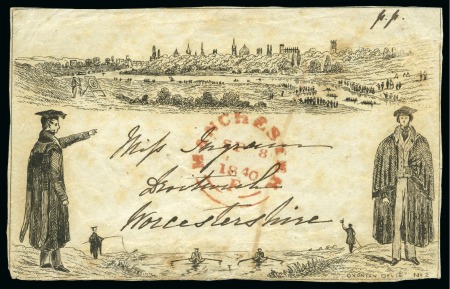 p.p.
Miss Ingram
Droitwich
Worcestershire
MANCHESTER
1840
OXONIAN DELT. No 2